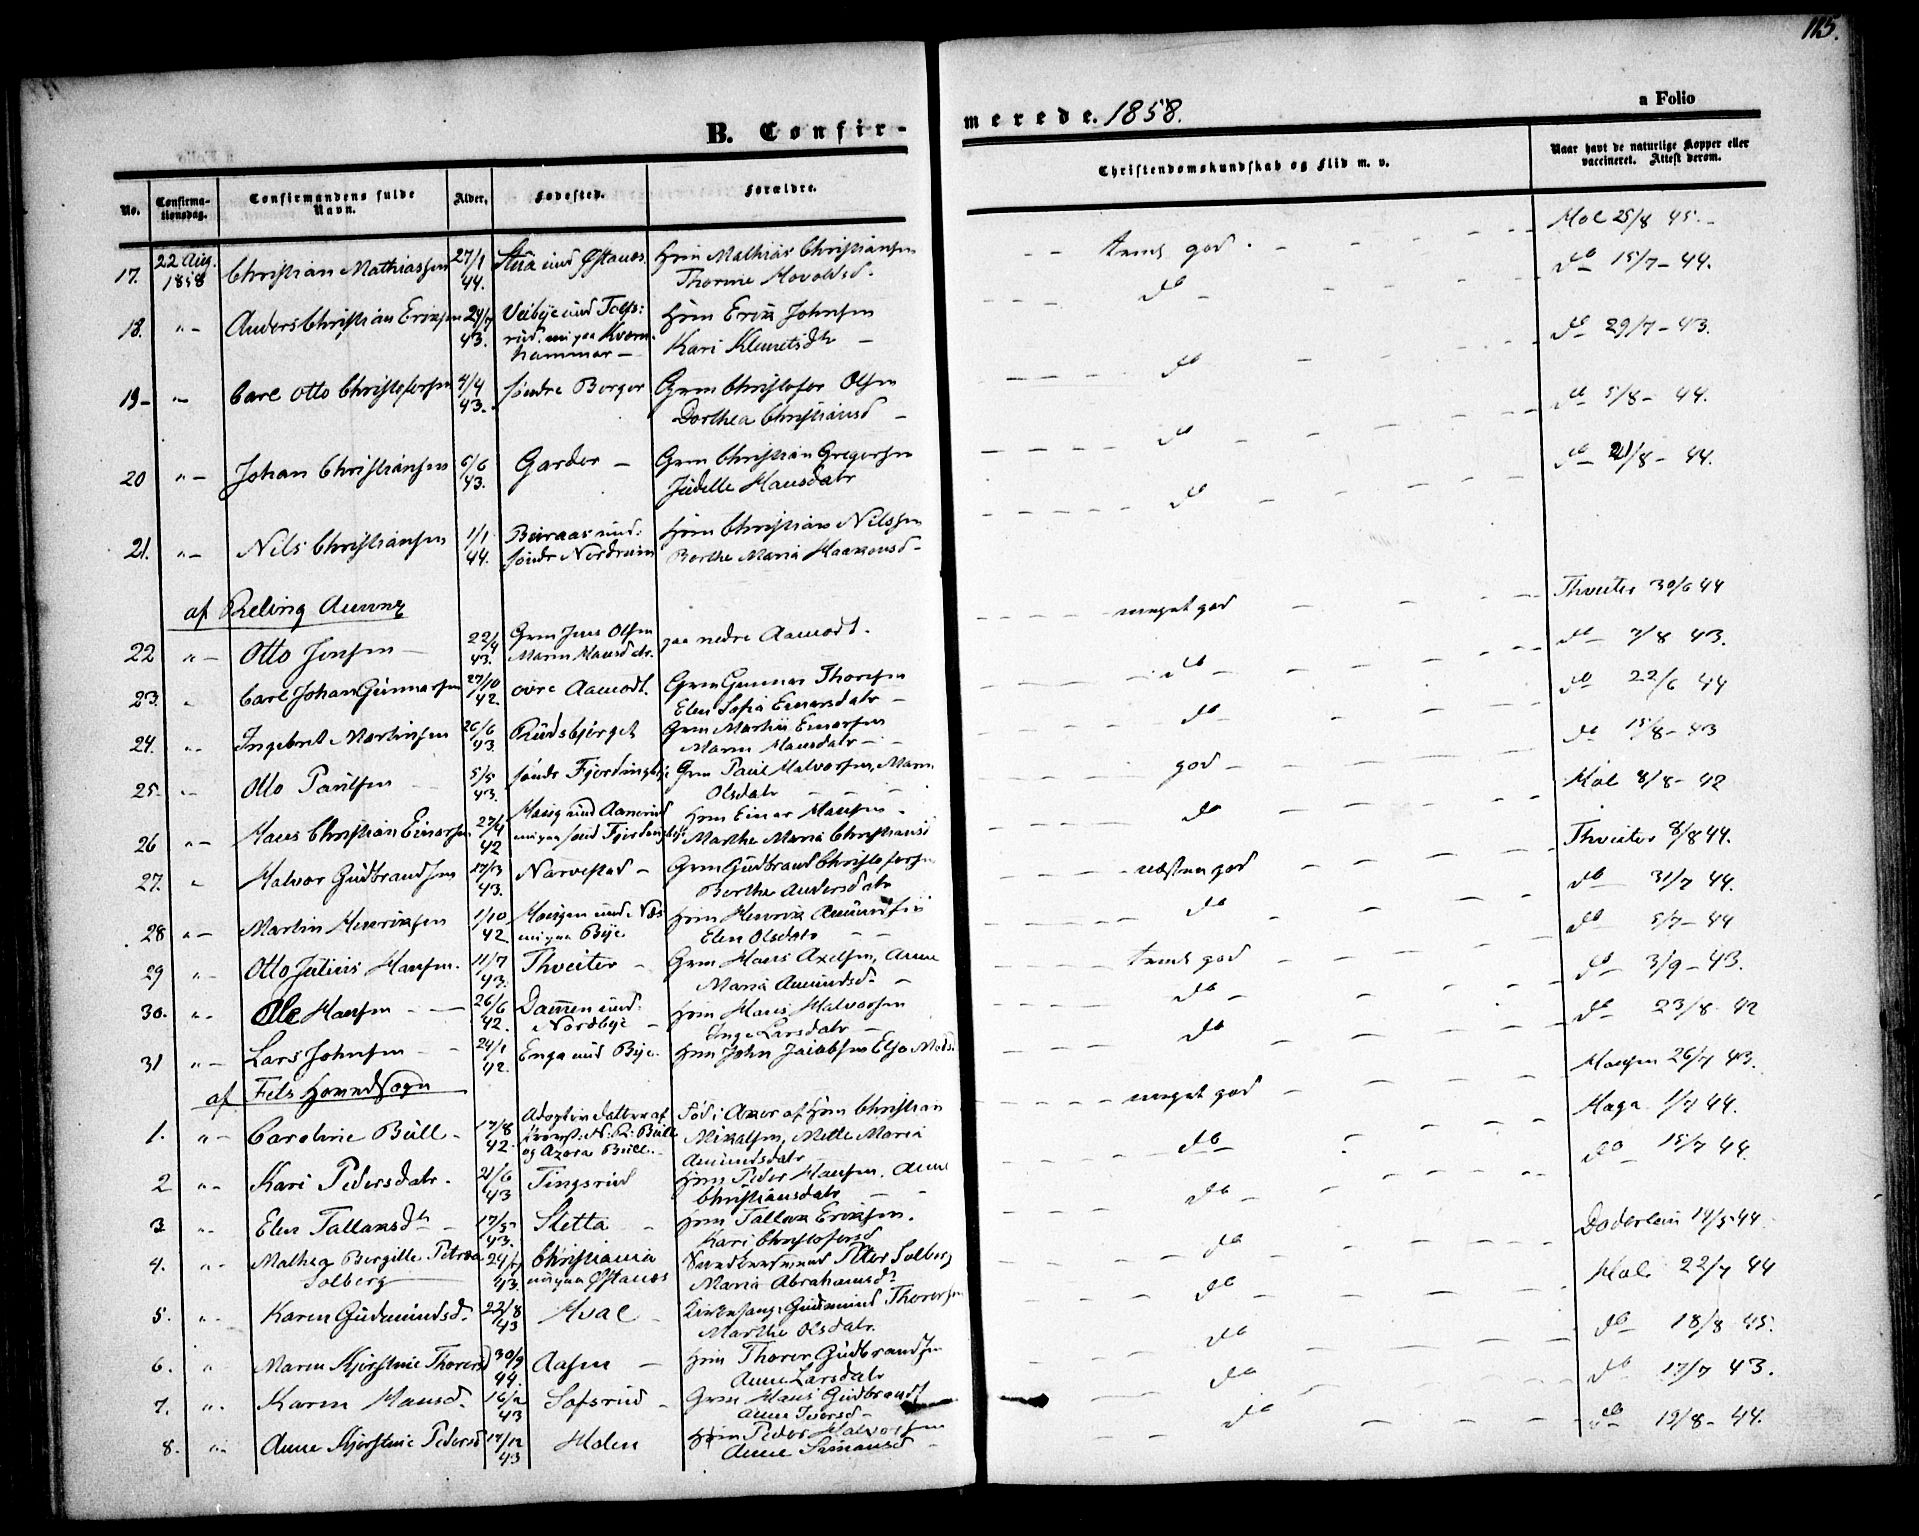 115.
B. Confir-
merede. 1858.
a Folio
No.
Confirma-
tionsdag.
Confirmandens fulde
Navn.
Alder.
Fødested.
Forældre.
Christendomskundskab og Flid m. v.
Naar havt de naturlige Kopper eller
vaccineret. Attest derom.
17. 22 Aug. 1858 Christian Mathiassen 27/1 44. Stua und Østanes. Hmn Mathias Christiansen
Thorine Hovoldsd. - - tmds god. - Hol 25/8 45. -
18. " - Anders Christian Eriksen 24/7 43. Veibye und Tolfs:
rud. migaa Kværn-
hammer - Hmn Erik Johnsen
Kari Klemetsdtr - do - do 15/7 - 44.
19 - " - Carl Otto Christofersen 4/4 43. søndre Borger Grm Christofer Olsen
Dorthea Christiansd - do do 29/7 - 43.
20 " - Johan Christiansen 6/6 43. Garder - Grm Christian Gregersen
Jædelle Hansdatr do do 5/8 - 44.
21. " - Nils Christiansen 1/1 44. und:
søndr Nordrum Hmn Christian Nilssen
Berthe Maria Haakonsd - do - do 21/8 - 44.
af Reling Annex
22 " - Otto Jensen - 22/4 43. Grm Jens Olsen
Maren Hansdatr. paa nedre Aamodt. meget god - Thveiter 30/6 44
23. " Carl Johan Gunnarsen 27/10 42. øvre Aamodt. Grm Gunnar Thorsen
Elen Sofia Einarsdatr - do - do 7/8 43.
24. " - Ingebret Martinsen 26/6 43. Rudsbjerget Grm Martin Einarsen
Maren Hansdatr - - do - do 22/6 44
25. " - Otto Paulsen - 5/5 43. søndr Fjerdingbye Grm Paul Halvorsen, Maren
Olsdatr - - god - do 15/8 - 43
26 " - Hans Christian Einarsen 27/4 42 Haug und Aanerud
migaa sønd Fjerdingbye Hmn Einar Hansen -
Marthe Maria Christiansd do - Hol 8/8 - 42
27. " Halvor Gudbrandsen 17/3 43. Narvestad - Grm Gudbrand Christofersen
Berthe Andersdatr næsten god Thveiter 8/8 44.
28 " - Martin Henriksen 1/10 42. Haugen und Næs
migaa Bye Hmn Henrik Amundsen
Elen Olsdatr - - do - do 31/7 44.
29 " - Otto Julius Hansen. 11/7 43. Thveiter - Grm Hans Axelsen, Anne
Maria Amundsd. - tmds god do - 5/7 - 44
30. " - Ole Hansen - - 26/6 42. Dammen und:
Nordbye - Hmn Hans Halvorsen
Inge Larsdatr - do - do - 3/9 - 43.
31 " - Lars Johnsen - 24/1 42. Enga und Bye. Hmn John Jacobsen Else Mads. do - do - 23/8 - 42
af Fets Hovedsogn
1. " - Caroline Büll - 17/8 42. Adoptivdatter af
Proprt. N. R. Büll
og Azora Büll. - Fød i Aker af Hmn Christian
Mikalsen, Mette Maria
Amundsdatr meget god - 26/7 43.
2 " - Kari Pedersdatr. 21/6 43 Tingsrud Hmn Peder Hansen. Anne
Christiansdatr - - do - Haga 1/7 44.
3. " - Elen Tallaksdtr - 17/5 43. Sletta - Hmn Tallak Eriksen.
Kari Christofersd do - do 15/7 44.
4. " - Mathea Bergitte Petrea
Solberg 24/7 43. Christiania
migaa Østanes Peter Solberg
Maria Abrahamsdr do - Døderlein 14/5 - 44
5. " - Karen Gudmundsd. 22/8 43 Hval - Kirkesang. Gudmund Thorersen
Marthe Olsdatr. do - Hol 22/7 44
6. " Maren Kjerstine Thorersd 30/9 44. Aasen - Hmn Thorer Gudbrandsen
Anne Larsdatr do - do - 18/8 45.
7. " - Karen Hansd. 16/2 43 Sofsrud - Grm Hans Gudbrands
Anne Iversd - do - do 17/7 43.
8. " - Anne Kjerstine Pedersd 17/12 43 Holen Hmn Peder Halvorsen
Anne Simonsd - do - do 19/8 - 44.